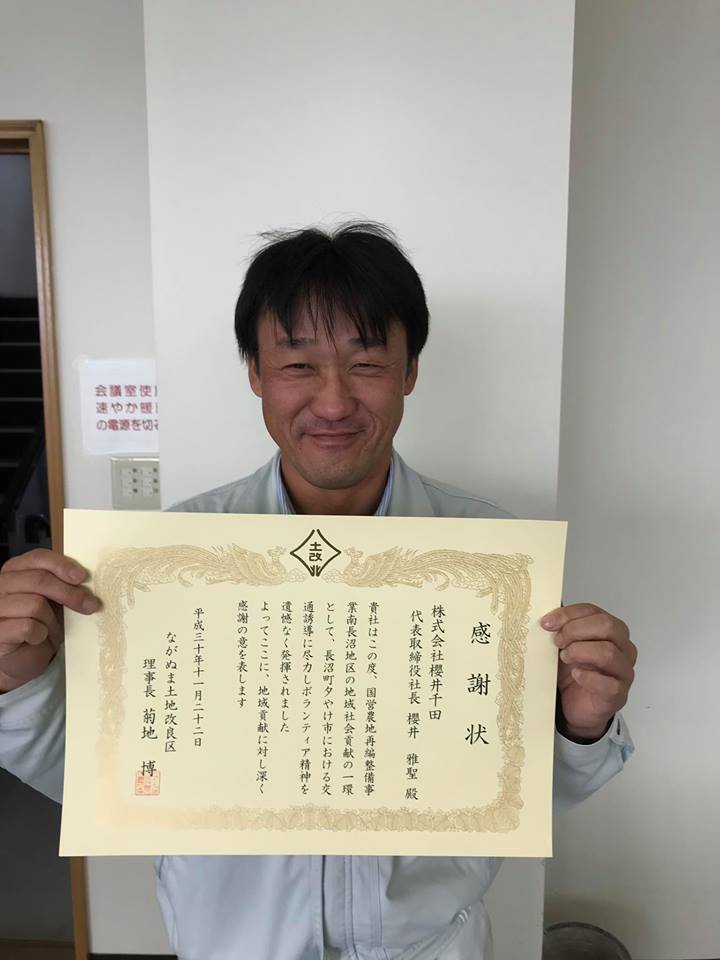 感謝状
株式会社櫻井千田
代表取締役社長 櫻井 雅聖 殿
貴社はこの度、国営農地再編整備事
業南長沼地区の地域社会貢献の一環
として、長沼町夕やけ市における交
通誘導に尽力しボランティア精神を
遺憾なく発揮されました
よってここに、地域貢献に対し深く
感謝の意を表します
平成三十年十一月二十二日
ながぬま土地改良区
理事長 菊地 博
土改
会議室使
速やか暖
の電源を切